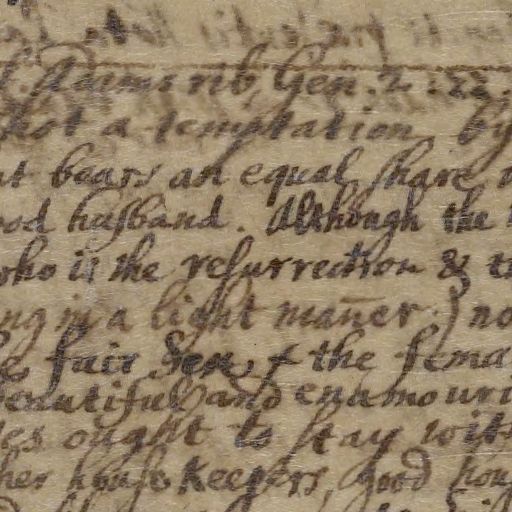 Adams rib, Gen. 2: 22.
not a temptation by
bears an equal share
husband. Although the
who is the resurrection &
in a light mañer.) no
fair Sex, & the fema
beautiful and enamouri
ought to stay with
her house keepers, good hou